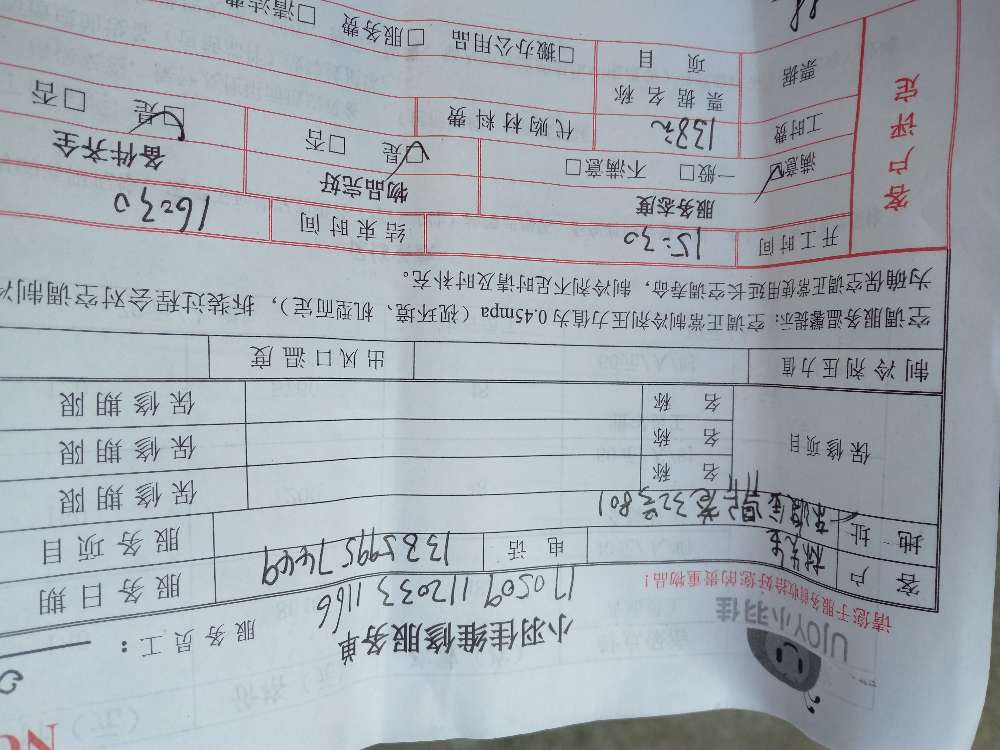 (元)
UJOY小羽佳
小羽佳维修服务单
请您于服务前收拾好您的贵重物品!
170509112033 1166
服务员工:
客户 林先生 电话 13859957449 服务日期
地址 32号801 服务项目
保修项目 名称 保修期限
名称 保修期限
名称 保修期限
制冷剂压力值 出风口温度
空调服务温馨提示:空调正常制冷剂压力值为0.45mpa(视环境、机型而定),拆装过程会对空调制冷
为确保空调正常使用延长空调寿命,制冷剂不足时请及时补充。
客户评定
开工时间 15:30 结束时间 16:30
服务态度 物品完好 备件齐全
满意 一般□ 不满意□ □是 □否 □是 □否
工时费 138元 代购材料费
票据 票据名称
项目 □搬办公用品 □服务费 □清洁费